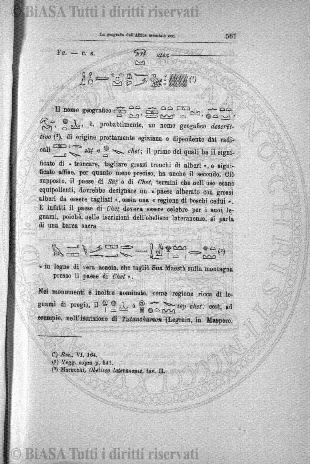 © BiASA Tutti i diritti riservati
La geografia dell'Africa orientale ecc. 561
Il nome geografico
è, probabilmente, un nome geografico descrit-
tivo (²), di origine prettamente egiziana e dipendente dai radi-
cali e chet; il primo dei quali ha il signi-
ficato di « troncare, tagliare grossi tronchi di alberi », o signi-
ficato affine, per quanto meno preciso, ha anche il secondo. Ciò
supposto, il paese di o di Chet, termini che nell'uso erano
equipollenti, dovrebbe designare un « paese alberato con grossi
alberi da essere tagliati », ossia una « regione di boschi cedui ».
E infatti il paese di Chet doveva essere celebre per i suoi le-
gnami, poiché nelle iscrizioni dell'obelisco lateranense, si parla
di una barca sacra
« in legno di vera acacia, che tagliò Sua Maestà sulla montagna
presso il paese di Chet ».
Nei monumenti è inoltre nominato, come regione ricca di le-
gnami di pregio, il chet; così, ad
esempio, nell'iscrizione di Tutanchamon (Legrain, in Maspero,
(¹) Sec., VI, 164.
(²) Vegg. sopra p. 541.
(³) Marucchi, Obelisco lateranense, tav. II.
© BiASA Tutti i diritti riservati